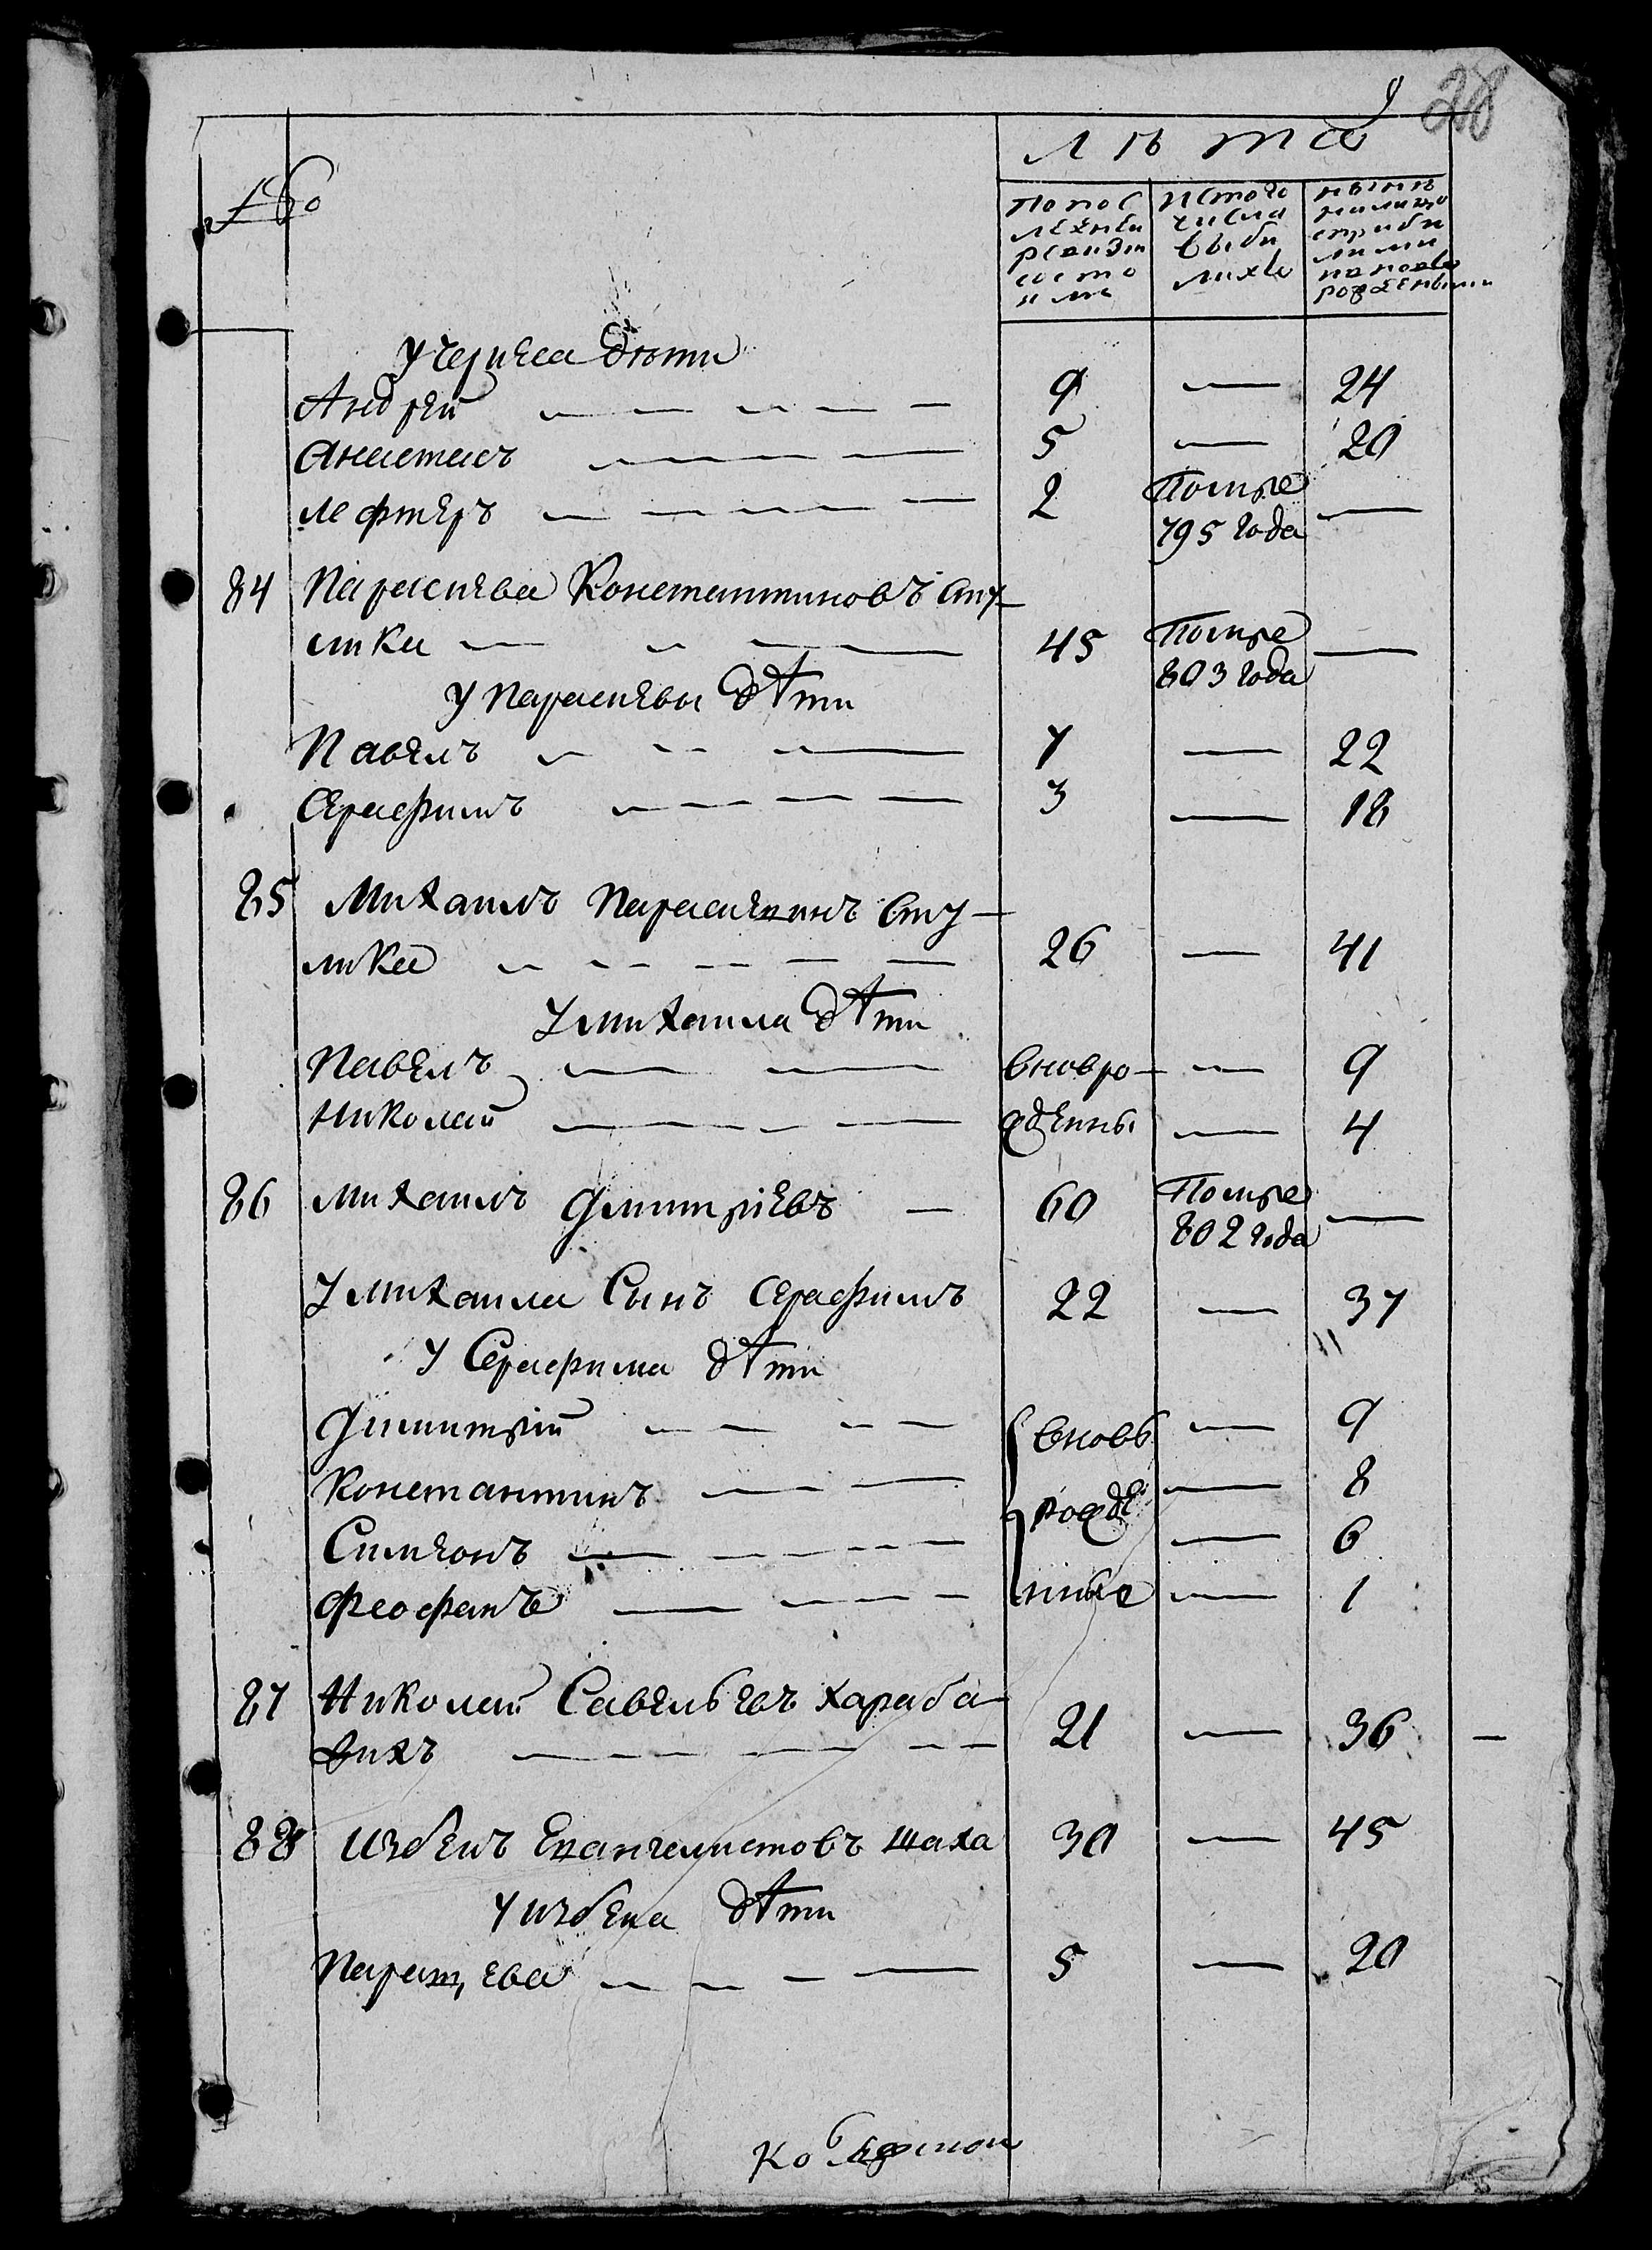 28
№
лѣта
По пос
ледней
ревизи
состо
яли
Истого
числа
выбы
лихъ
нынѣ
налицо
сприбы
лыми
и вновь
рожденными
у дѣти
Андрей — 9 — 24
Анастасъ — 5 — 20
Лефтеръ — 2 Помре —
795 года
84 Параскева Константиновъ Сту-
лика — 45 Помре —
803 года
у Параскевы дѣти
Павелъ — 7 — 22
Серафимъ — 3 — 18
85 Михаилъ Параскевинъ Сту-
лика — 26 — 41
у михаила дѣти
Павелъ — вновро- — 9
Николай — жденны — 4
86 михаилъ Дмитріевъ — 60 Помре —
802 года
у михаила Сынъ Серафимъ 22 — 37
у Серафима дѣти
Дмитрій — вновь — 9
Константинъ — рожде — 8
Симеонъ — — 6
Феофанъ — нные — 1
87 Николай Савельевъ Хараба-
— 21 — 36 —
88 Избенъ Евангелистовъ шаха 30 — 45
у избена дѣти
Параскева — 5 — 20